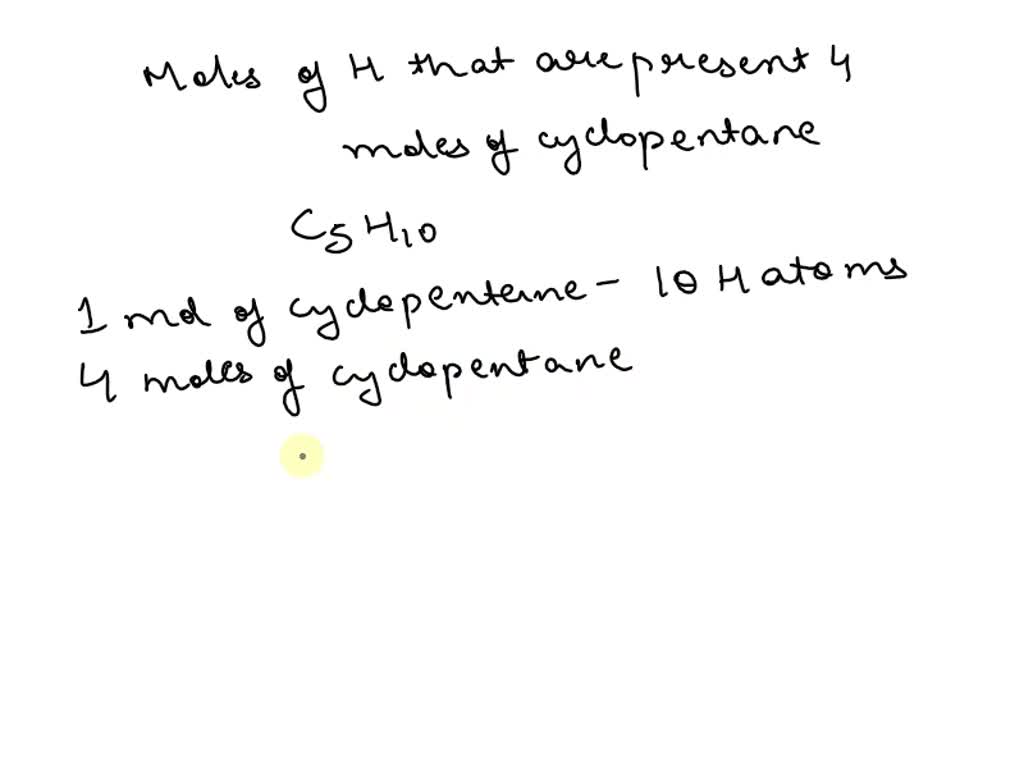 Moles of H that are present 4
moles of cyclopentane
C5H10
1 mol of cyclopentane - 10 H atoms
4 moles of cyclopentane